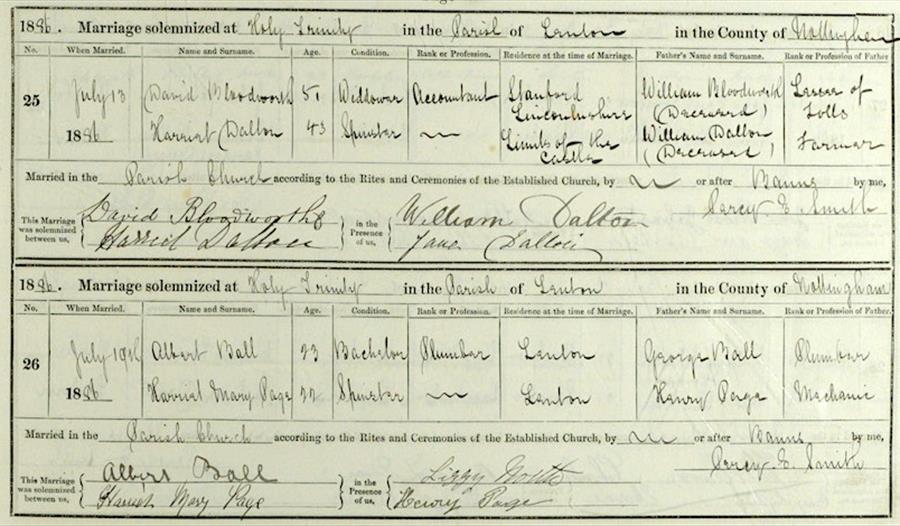 1886. Marriage solemnized at Holy Trinity in the Parish of Lenton in the County of Nottingham
No. When Married. Name and Surname. Age. Condition. Rank or Profession. Residence at the time of Marriage. Father's Name and Surname. Rank or Profession of Father
25 July 13 David Bloodworth 51 Widdower Accountant Stamford Lincolnshire William Bloodworth (Deceased) Lessee of Tolls
1886 Harriet Dalton 43 Spinster Limits of the Castle William Dalton (Deceased) Farmer
Married in the Parish Church according to the Rites and Ceremonies of the Established Church, by or after Banns by me,
Percy E. Smith
This Marriage was solemnized between us, David Bloodworth in the Presence of us, William Dalton
Harriet Dalton Jane Dalton
1886. Marriage solemnized at Holy Trinity in the Parish of Lenton in the County of Nottingham
No. When Married. Name and Surname. Age. Condition. Rank or Profession. Residence at the time of Marriage. Father's Name and Surname. Rank or Profession of Father.
26 July 19th Albert Ball 23 Bachelor Plumber Lenton George Ball Plumber
1886 Harriet Mary Page 22 Spinster Lenton Henry Page Mechanic
Married in the Parish Church according to the Rites and Ceremonies of the Established Church, by or after Banns by me,
Percy E. Smith
This Marriage was solemnized between us, Albert Ball in the Presence of us, Lizzy North
Harriet Mary Page Henry Page